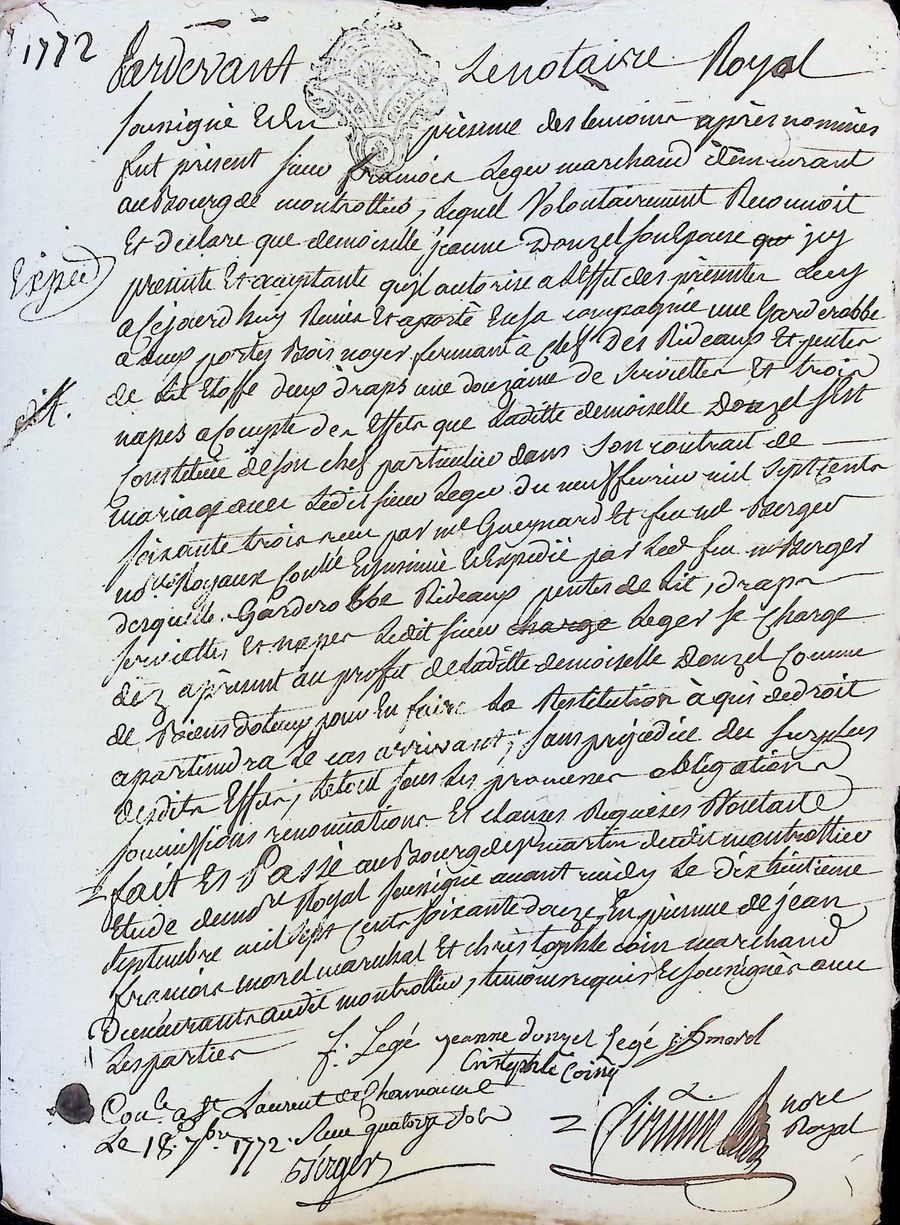 1772
Pardevant Lenotaire Royal
soussigné et en présence des temoins après nommés
fut présent sieur françois Leger marchand demeurant
au Bourg de montrottier, lequel Volontairement Reconnoit
Et déclare que demoiselle jeanne Donzel son Epouse icy
présente Et acceptante qu'il autorise a L'effet des présentes Luy
a cejourdhuy Remis Et aporté En sa compagnie une Garderobbe
a deux portes Bois noyer fermant à clef Des Rideaux Et pentes
de Lit Etoffe deux draps une douzaine de serviettes Et trois
napes a Compte des Effets que Laditte demoiselle Donzel s'est
Constituée de son chef particulier dans son contrat de
mariage avec Ledit sieur Leger du neuf fevrier mil sept cents
soixante trois reçu par me Gueynard Et feu me Berger
nores Royaux Conllé Insinué Et Expedié par Led feu me Berger
desquels Garderobbe Rideaux pentes de Lit, draps
serviettes Et napes Ledit sieur charge Leger se Charge
dez apresent au proffit de Laditte demoiselle Donzel Comme
de Biens dotaux pour En faire La Restitution à qui de droit
apartiendra Le cas arrivant, sans préjudice du surplus
desdits Effets, Le tout sous Les promesses obligations
soumissions renonciations Et clauses Requises
fait Et Passé au Bourg de St martin dudit montrottier
Etude dunore Royal soussigné avant midy Le dix huitieme
septembre mil sept Cents soixante douze En présence de jean
françois morel marechal Et christophle coin marchand
Demeurants audit montrottier, témoins requis Et soussignés avec
Lesparties
Expéd
f. Legé jeanne donzel Legé jf morel
Cristophle Coing
Conle a St Laurent de Chamousset
Le 18e 7bre 1772. Reçu quatorze sols
Berger
nore
Royal